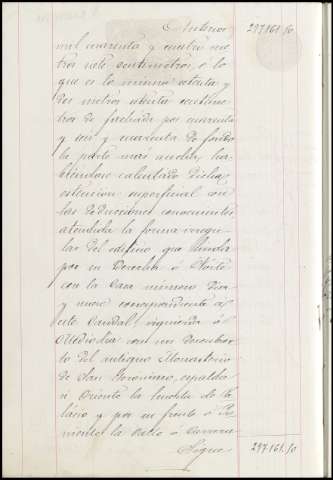 Anterior 297.161.50
mil cuarenta y cuatro me
tros siete centimetros, ó lo
que es lo mismo ochenta y
dos metros ochenta centime
tros de fachada por cuarenta
y seis y cuarenta de fondo
la parte mas ancha, ha
biendose calculado dicha
estension superficial con
las deducciones convenientes
atendida la forma irregu
lar del edificio que linda
por su Derecha ó Norte
con la Casa numero Diez
y nueve correspondiente á
este Caudal, izquierda ó
Mediodia con un Descubier
to del antiguo Monasterio
de San Geronimo, espalda
ú Oriente la huerta de Pa
lacio y por su frente ó Po
niente la Calle ó Carrera
Sigue 297.161.50